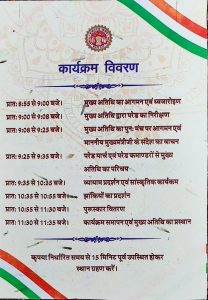 कार्यक्रम विवरण
प्रात: 8:55 से 9:00 बजे। मुख्य अतिथि का आगमन एवं ध्वजारोहण
प्रात: 9:00 से 9:08 बजे। मुख्य अतिथि द्वारा परेड का निरीक्षण
प्रात: 9:08 से 9:25 बजे। मुख्य अतिथि का पुन: मंच पर आगमन एवं
माननीय मुख्यमंत्रीजी के संदेश का वाचन
प्रात: 9:25 से 9:35 बजे। परेड मार्च एवं परेड कमाण्डरों से मुख्य
अतिथि का परिचय
प्रात: 9:35 से 10:35 बजे। व्यायाम प्रदर्शन एवं सांस्कृतिक कार्यक्रम
प्रात: 10:35 से 10:55 बजे। झांकियों का प्रदर्शन
प्रात: 10:55 से 11:30 बजे। पुरूस्कार वितरण
प्रात: 11:30 से 11:35 बजे। कार्यक्रम समापन एवं मुख्य अतिथि का प्रस्थान
कृपया निर्धारित समय से 15 मिनिट पूर्व उपस्थित होकर
स्थान ग्रहण करें।